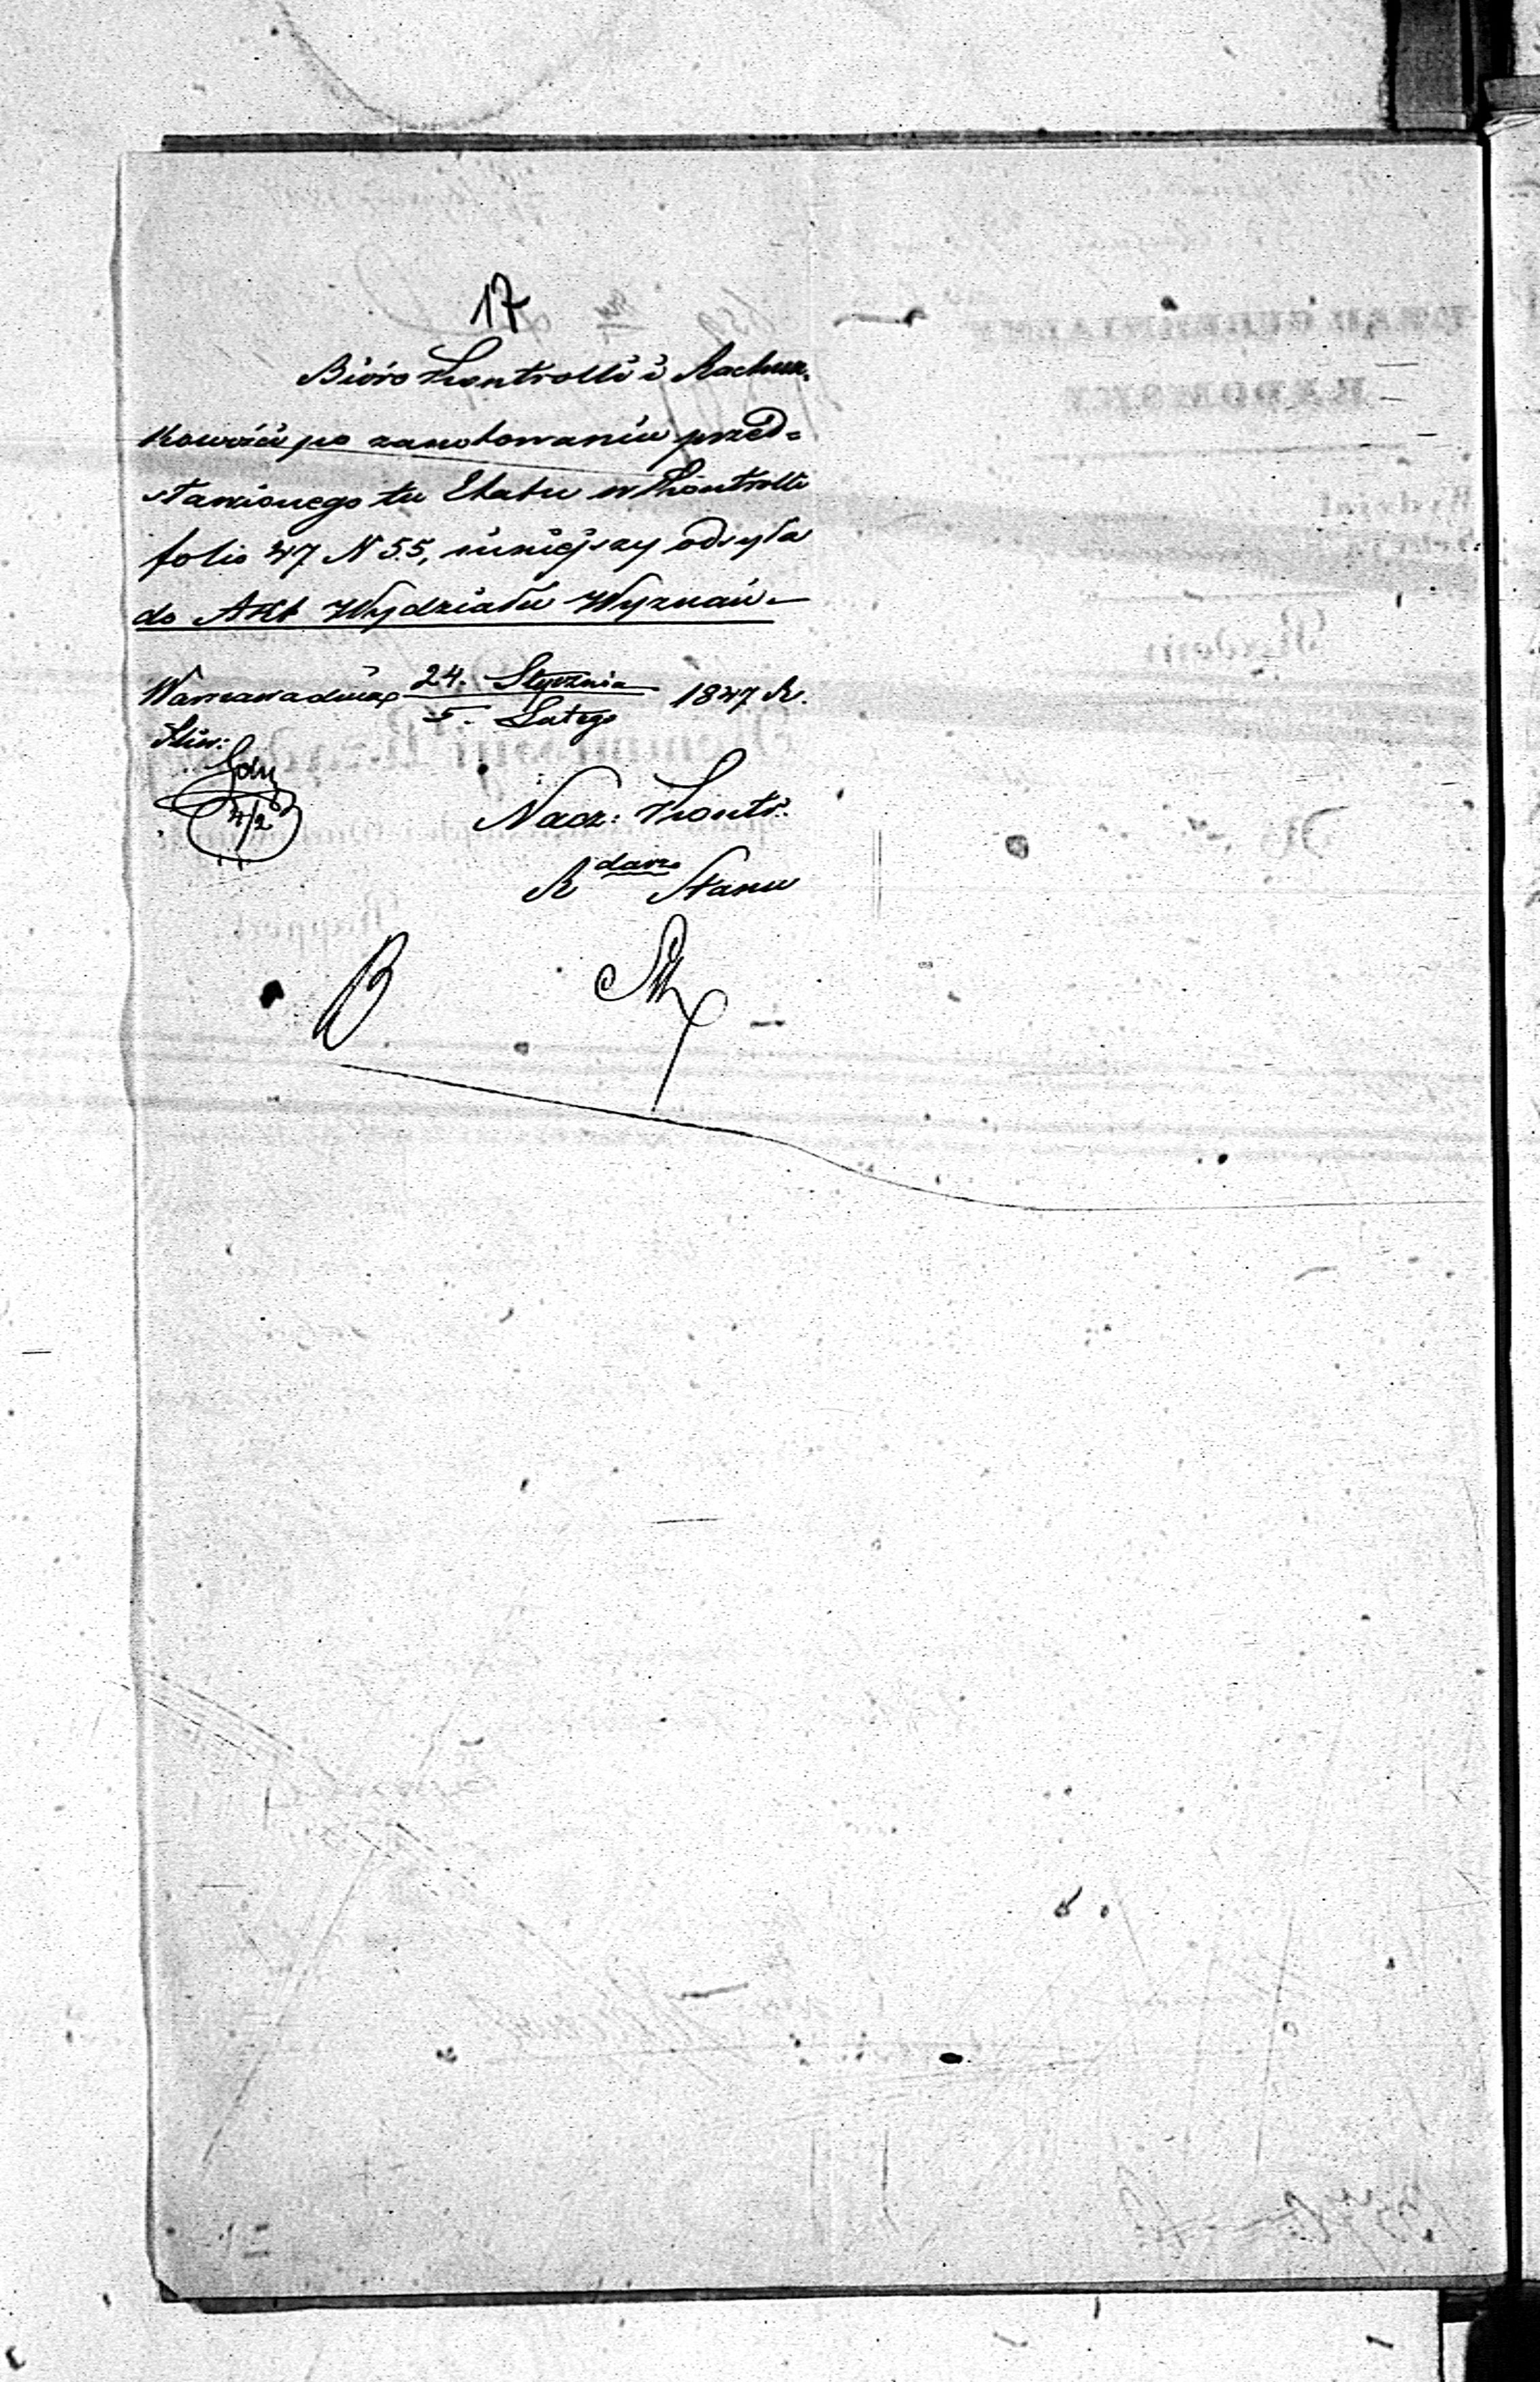 17
Bióro Kontrolli i Rachun-
kowości po zanotowaniu przed=
stawionego tu Etatu w Kontrolli
folio 47 N 55, niniejszy odsyła
do Akt Wydziału Wyznań. –
Warszawa dnia 24. Stycznia / 5. Lutego 1847 R.
4/2
Nacz: Kontr:
R dca Stanu